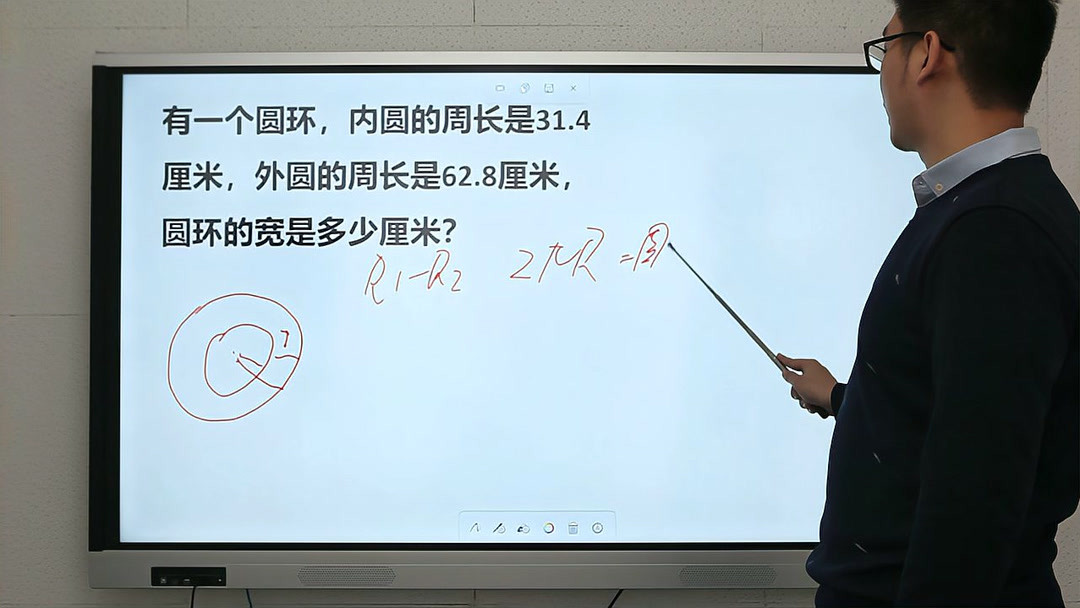 有一个圆环，内圆的周长是31.4
厘米，外圆的周长是62.8厘米，
圆环的宽是多少厘米？
R1-R2 2πR=圆
?